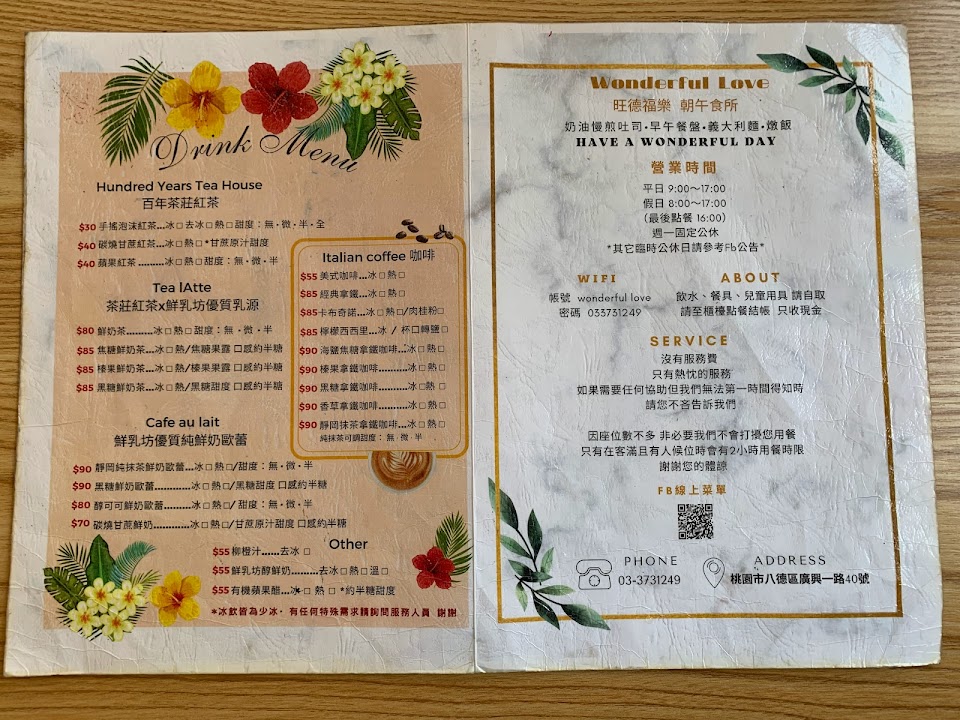 Drink Menu
Hundred Years Tea House
百年茶莊紅茶
$30 手搖泡沫紅茶...冰□去冰□熱□甜度：無·微·半·全
$40 碳燒甘蔗紅茶...冰□熱□*甘蔗原汁甜度
$40 蘋果紅茶.........冰□熱□甜度：無·微·半
Tea lAtte
茶莊紅茶x鮮乳坊優質乳源
$80 鮮奶茶.........冰□熱□甜度：無·微·半
$85 焦糖鮮奶茶...冰□熱/焦糖果露 口感約半糖
$85 榛果鮮奶茶...冰□熱/榛果果露 口感約半糖
$85 黑糖鮮奶茶...冰□熱/黑糖甜度 口感約半糖
Cafe au lait
鮮乳坊優質純鮮奶歐蕾
$90 靜岡純抹茶鮮奶歐蕾...冰□熱□/甜度：無·微·半
$90 黑糖鮮奶歐蕾............冰□熱□/黑糖甜度 口感約半糖
$80 醇可可鮮奶歐蕾.........冰□熱□/甜度：無·微·半
$70 碳燒甘蔗鮮奶............冰□熱□/甘蔗原汁甜度 口感約半糖
Italian coffee 咖啡
$55 美式咖啡...冰□熱□
$85 經典拿鐵...冰□熱□
$85 卡布奇諾...冰□熱□/肉桂粉□
$85 檸檬西西里...冰 / 杯口轉鹽□
$90 海鹽焦糖拿鐵咖啡...冰□熱□
$90 榛果拿鐵咖啡.........冰□熱□
$90 黑糖拿鐵咖啡.........冰□熱□
$90 香草拿鐵咖啡.........冰□熱□
$90 靜岡抹茶拿鐵咖啡...冰□熱□
純抹茶可調甜度：無·微·半
Other
$55 柳橙汁......去冰□
$55 鮮乳坊醇鮮奶.........去冰□熱□溫□
$55 有機蘋果醋...冰□熱□*約半糖甜度
*冰飲皆為少冰，有任何特殊需求請詢問服務人員 謝謝
Wonderful Love
旺德福樂 朝午食所
奶油慢煎吐司•早午餐盤•義大利麵•燉飯
HAVE A WONDERFUL DAY
營業時間
平日 9:00～17:00
假日 8:00～17:00
(最後點餐 16:00)
週一固定公休
*其它臨時公休日請參考Fb公告*
WIFI
帳號 wonderful love
密碼 033731249
ABOUT
飲水、餐具、兒童用具 請自取
請至櫃檯點餐結帳 只收現金
SERVICE
沒有服務費
只有熱忱的服務
如果需要任何協助但我們無法第一時間得知時
請您不吝告訴我們
因座位數不多 非必要我們不會打擾您用餐
只有在客滿且有人候位時會有2小時用餐時限
謝謝您的體諒
FB線上菜單
PHONE
03-3731249
ADDRESS
桃園市八德區廣興一路40號